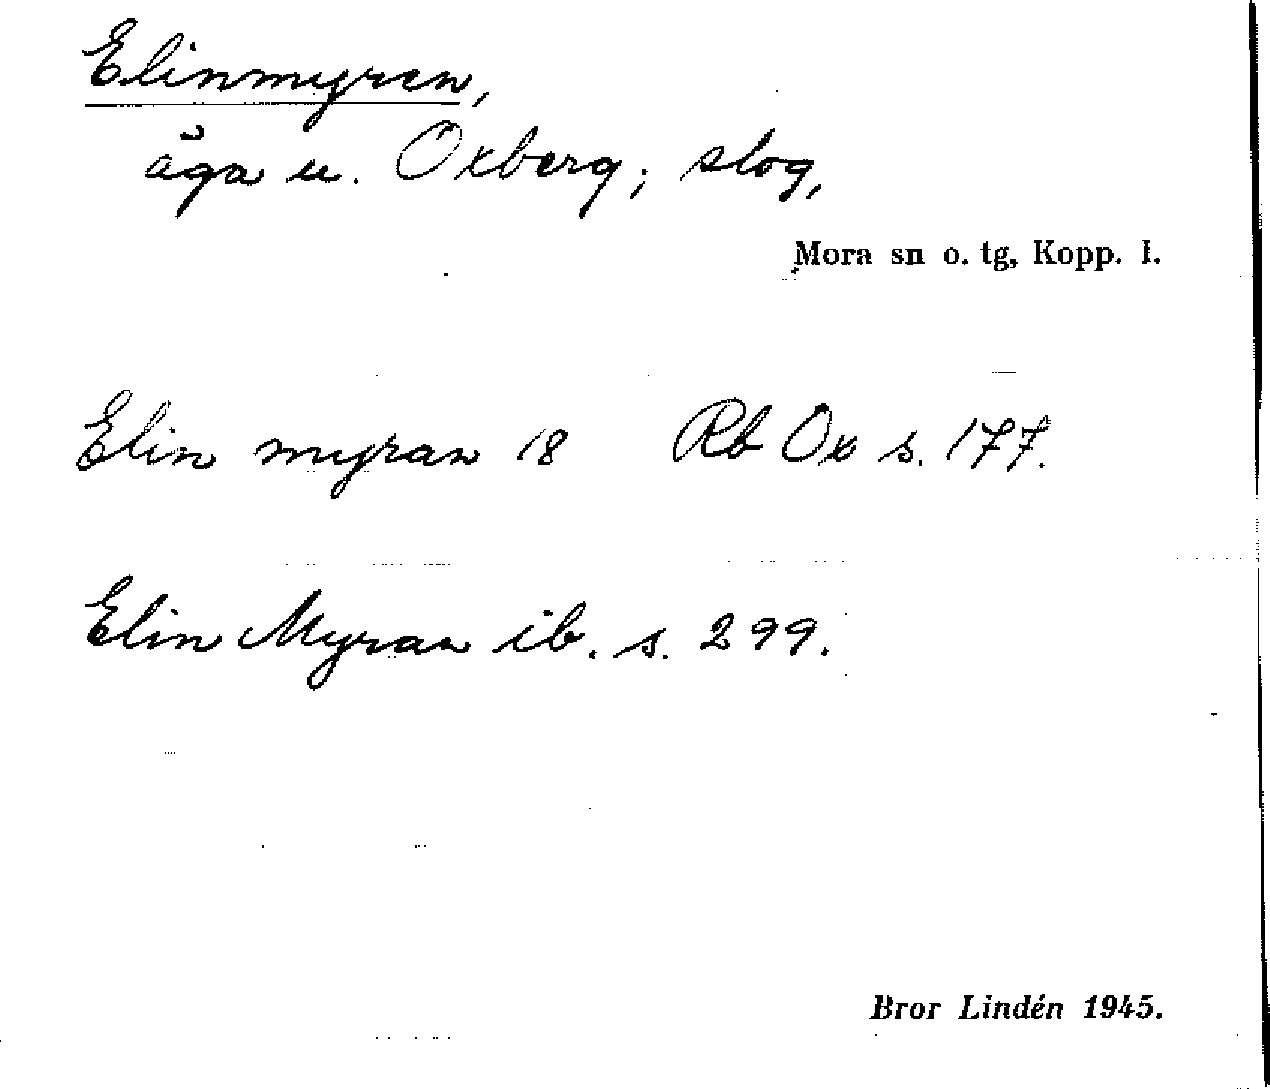 Elinmyren,
äga u. Oxberg; slog,
Mora sn o. tg, Kopp. l.
Elin myran 18 Rb Ox s. 177.
Elin Myran ib. s. 299.
Bror Lindén 1945.